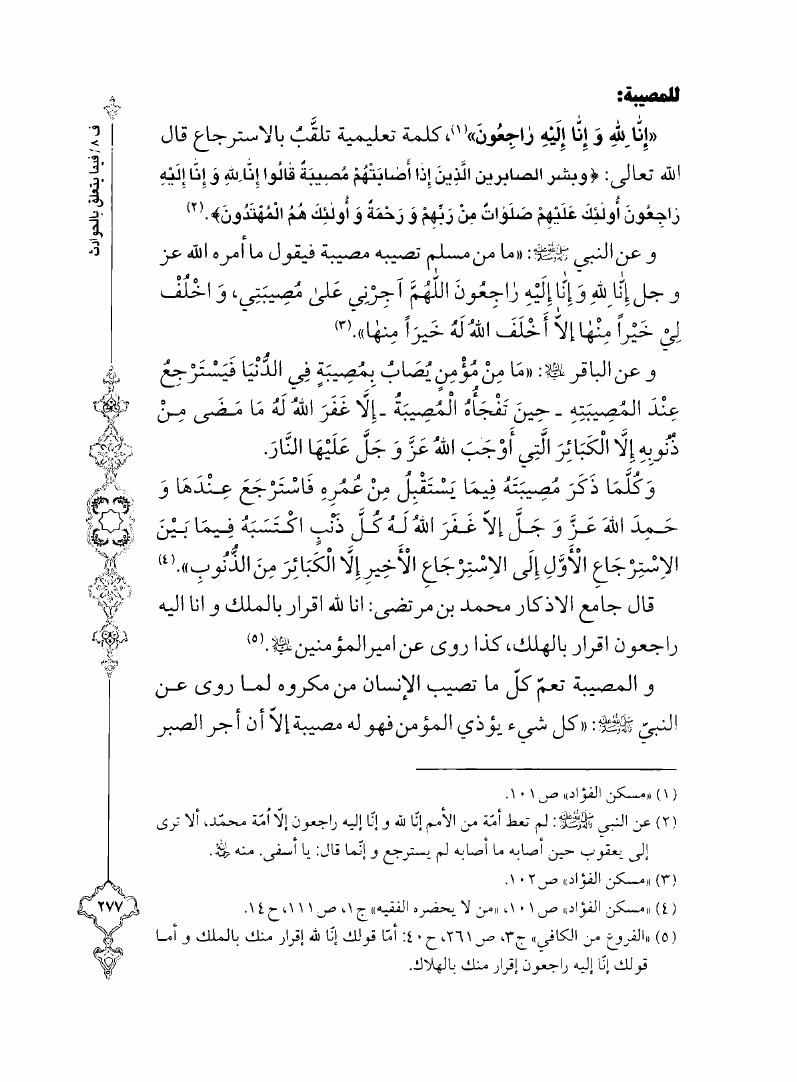 للمصيبة:
«إِنَّا لِلّٰهِ وَ إِنَّا إِلَيْهِ رٰاجِعُونَ»(١)، كلمة تعليمية تلقَّبُ بالاسترجاع قال
الله تعالى: ﴿وبشر الصابرين الَّذِينَ إِذٰا أَصٰابَتْهُمْ مُصِيبَةٌ قٰالُوا إِنّٰا لِلّٰهِ وَ إِنّٰا إِلَيْهِ
رٰاجِعُونَ أُولٰئِكَ عَلَيْهِمْ صَلَوٰاتٌ مِنْ رَبِّهِمْ وَ رَحْمَةٌ وَ أُولٰئِكَ هُمُ الْمُهْتَدُونَ﴾.(٢)
و عن النبي ﷺ: «ما من مسلم تصيبه مصيبة فيقول ما أمره الله عز
و جل إِنَّا لِلّٰهِ وَ إِنَّا إِلَيْهِ رٰاجِعُونَ اللّٰهُمَّ آجِرْنِي عَلىٰ مُصِيبَتِي، وَ اخْلُف
لِيْ خَيْراً مِنْهٰا إِلاّٰ أَخْلَفَ اللهُ لَهُ خَيراً مِنهٰا».(٣)
و عن الباقر ﷷ: «مَا مِنْ مُؤْمِنٍ يُصَابُ بِمُصِيبَةٍ فِي الدُّنْيَا فَيَسْتَرْجِعُ
عِنْدَ المُصِيبَتِهِ ـ حِينَ تَفْجَأُهُ الْمُصِيبَةُ ـ إِلاَّ غَفَرَ اللهُ لَهُ مَا مَضَى مِنْ
ذُنُوبِهِ إِلَّا الْكَبَائِرَ الَّتِي أَوْجَبَ اللهُ عَزَّ وَ جَلَّ عَلَيْهَا النَّارَ.
وَ كُلَّمَا ذَكَرَ مُصِيبَتَهُ فِيمَا يَسْتَقْبِلُ مِنْ عُمُرِهِ فَاسْتَرْجَعَ عِنْدَهَا وَ
حَمِدَ اللهَ عَزَّ وَ جَلَّ إلاَّ غَفَرَ اللهُ لَهُ كُلَّ ذَنْبٍ اكْتَسَبَهُ فِيمَا بَيْنَ
الاِسْتِرْجَاعِ الْأَوَّلِ إِلَى الاِسْتِرْجَاعِ الْأَخِيرِ إِلَّا الْكَبَائِرَ مِنَ الذُّنُوبِ».(٤)
قال جامع الاذكار محمد بن مرتضى: انا لله اقرار بالملك و انا اليه
راجعون اقرار بالهلك، كذا روى عن اميرالمؤمنين ﷷ.(٥)
و المصيبة تعمّ كلّ ما تصيب الإنسان من مكروه لما روى عن
النبيّ ﷺ: «كل شيء يؤذي المؤمن فهو له مصيبة إلاّ أن أجر الصبر
(١) «مسكن الفؤاد» ص ١٠١.
(٢) عن النبي ﷺ: لم تعط أمّة من الأمم إنّا لله و إنّا إليه راجعون إلّا اُمّة محمّد، ألا ترى
إلى يعقوب حين أصابه ما أصابه لم يسترجع و إنّما قال: يا أسفى. منه
(٣) «مسكن الفؤاد» ص ١٠٢.
(٤) «مسكن الفؤاد» ص ١٠١، «من لا يحضره الفقيه» ج ١، ص ١١١، ح ١٤.
(٥) «الفروع من الكافي» ج٣، ص ٢٦١، ح ٤٠: أمّا قولك إنّا لله إقرار منك بالملك و أما
قولك إنّا إليه راجعون إقرار منك بالهلاك.
ف ٨ / فيما يتعلق بالحوادث
٢٧٧